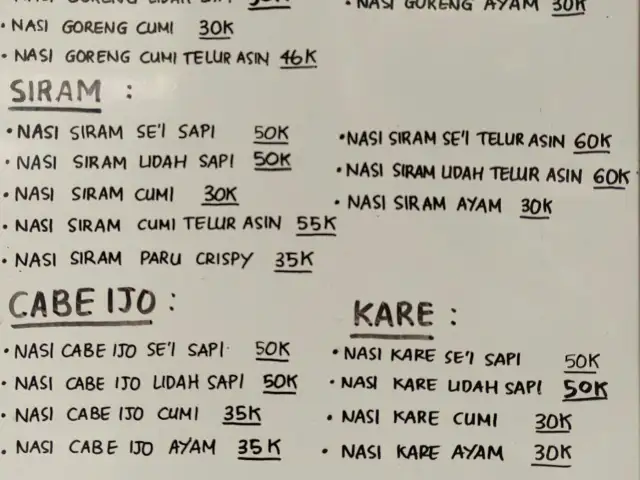 NASI GORENG AYAM 30K
• NASI GORENG CUMI 30K
• NASI GORENG CUMI TELUR ASIN 46K
SIRAM :
• NASI SIRAM SE'I SAPI 50K
• NASI SIRAM LIDAH SAPI 50K
• NASI SIRAM CUMI 30K
• NASI SIRAM CUMI TELUR ASIN 55K
• NASI SIRAM PARU CRISPY 35K
• NASI SIRAM SE'I TELUR ASIN 60K
• NASI SIRAM LIDAH TELUR ASIN 60K
• NASI SIRAM AYAM 30K
CABE IJO :
• NASI CABE IJO SE'I SAPI 50K
• NASI CABE IJO LIDAH SAPI 50K
• NASI CABE IJO CUMI 35K
• NASI CABE IJO AYAM 35K
KARE :
• NASI KARE SE'I SAPI 50K
• NASI KARE LIDAH SAPI 50K
• NASI KARE CUMI 30K
• NASI KARE AYAM 30K